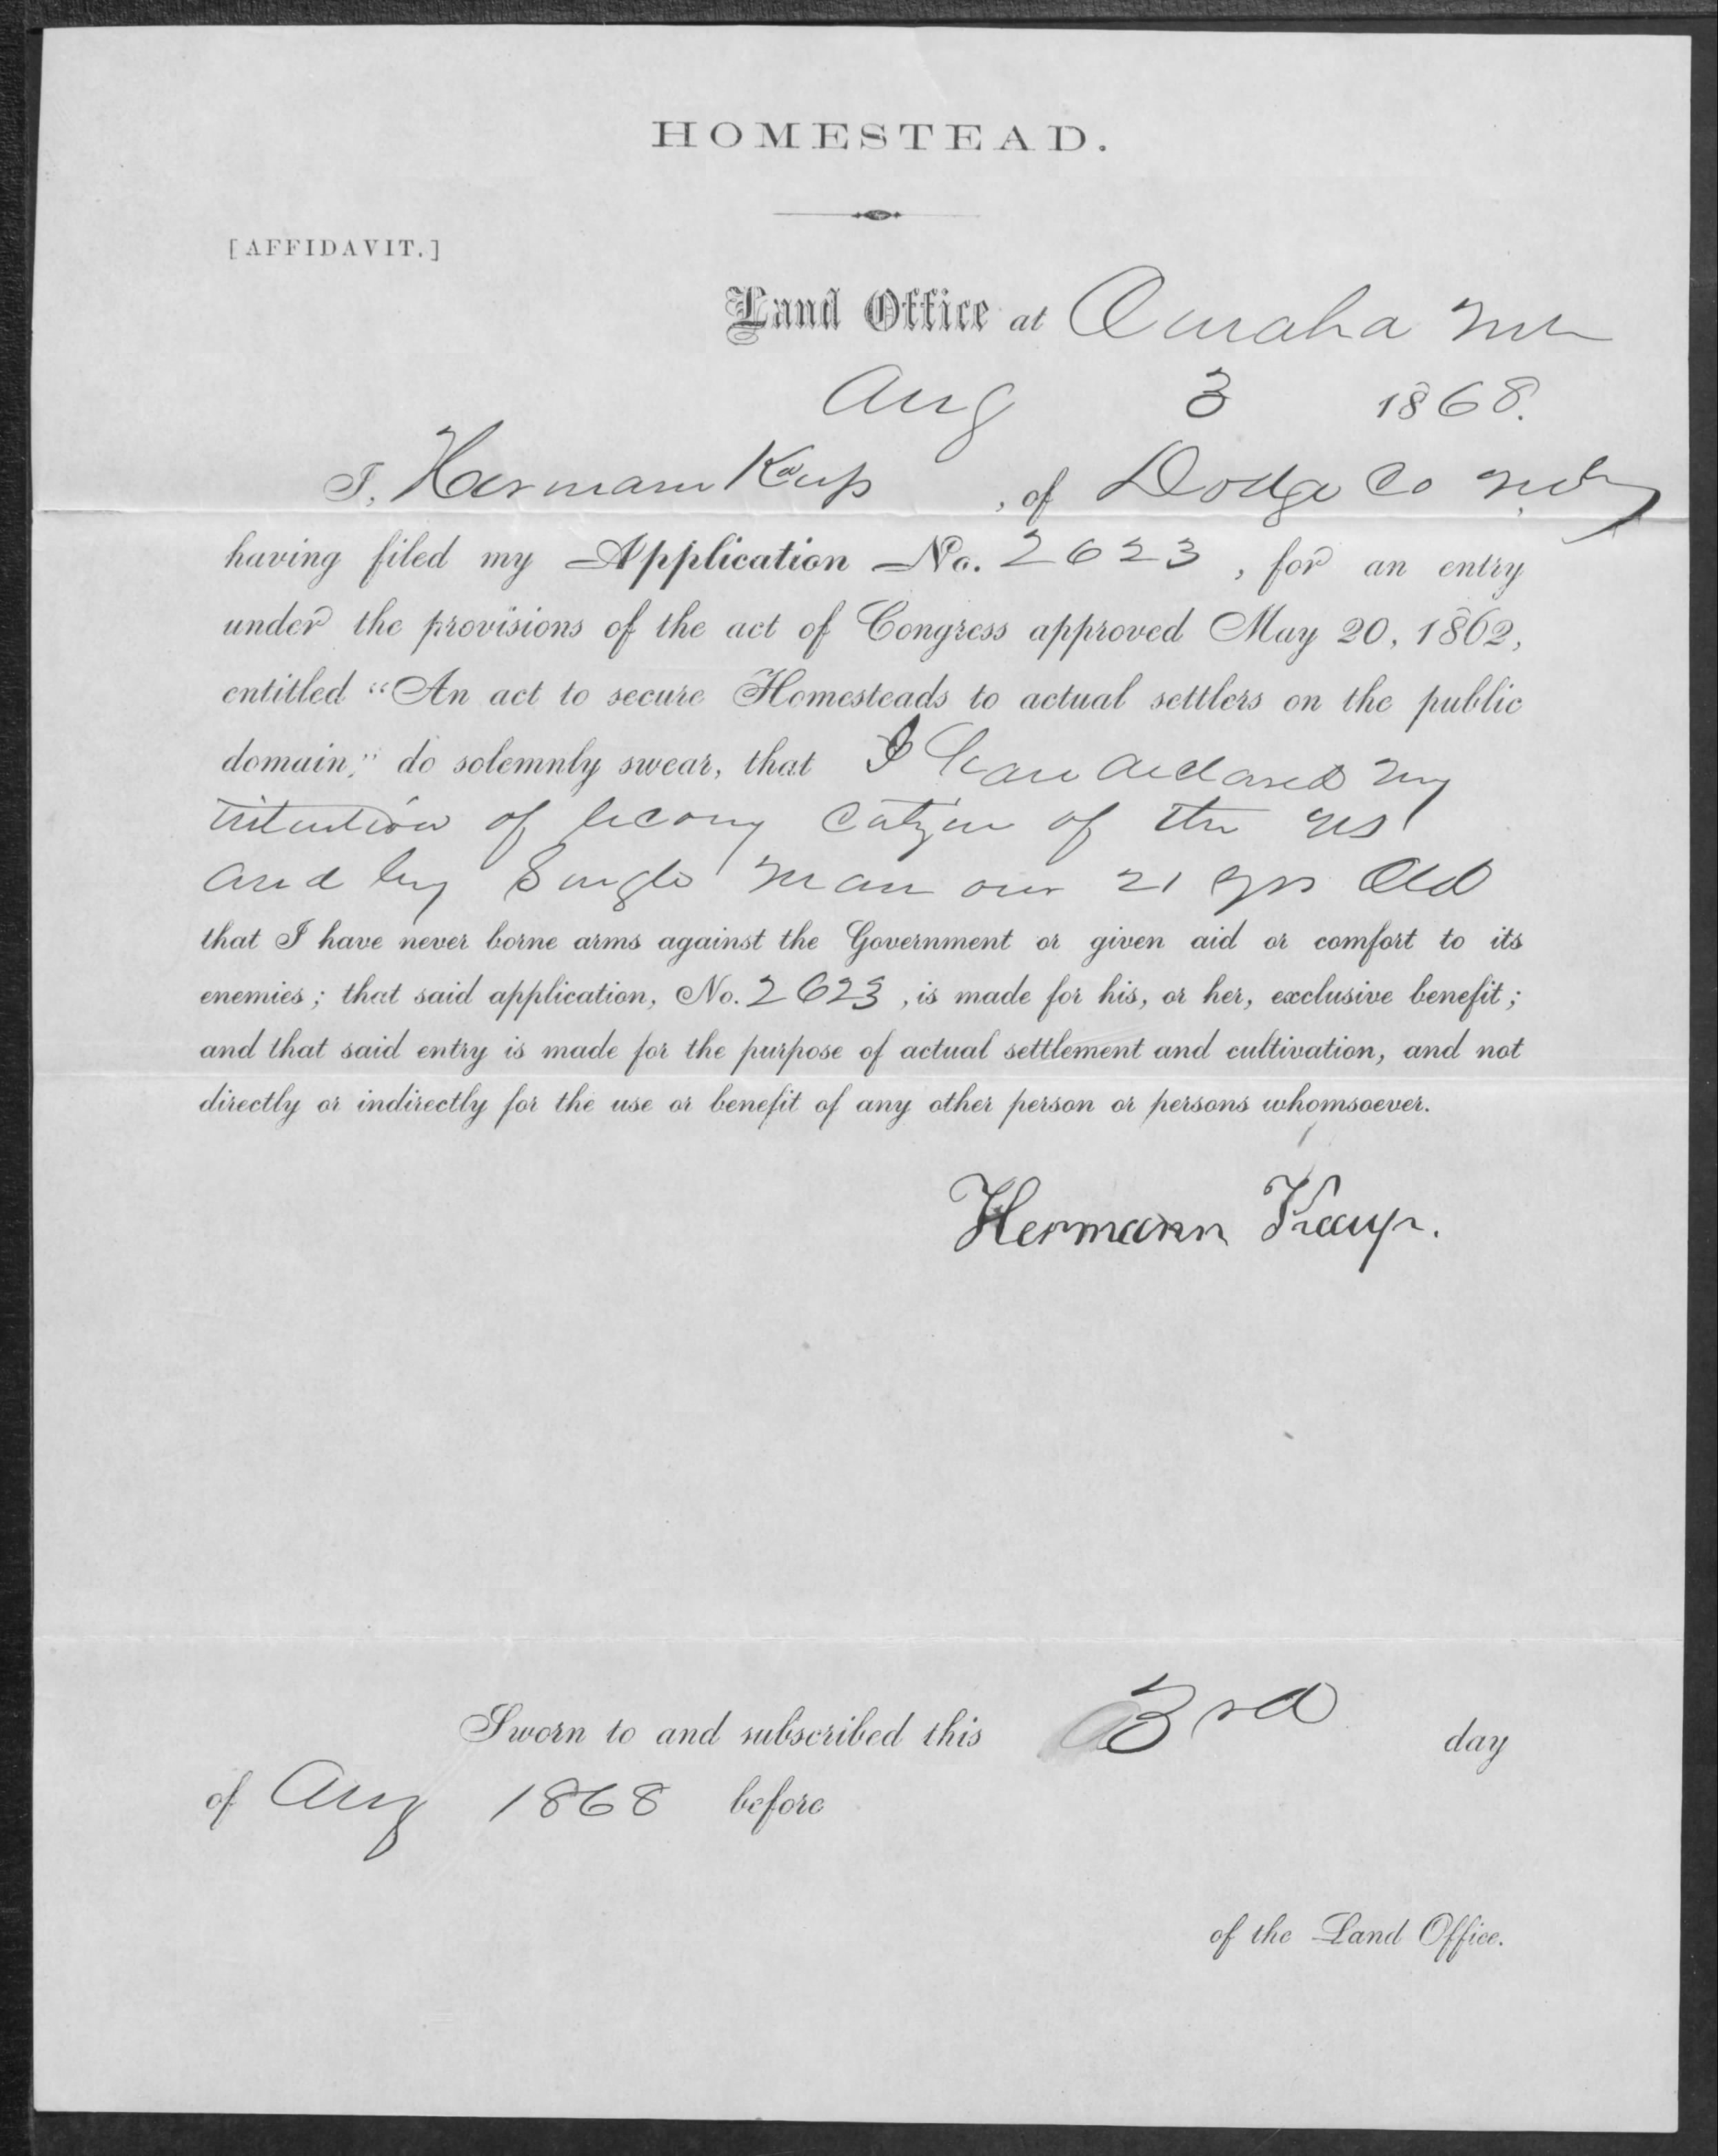 HOMESTEAD.
[AFFIDAVIT.]
Land Office at Omaha Neb
Aug 3 1868.
I, Herman Kaup, of Dodge Co Neb
having filed my Application No. 2623, for an entry
under the provisions of the act of Congress approved May 20, 1862,
entitled "An act to secure Homesteads to actual settlers on the public
domain," do solemnly swear, that I have declared my
intention of becomg Citizen of the US
and by Single man over 21 yrs Old
that I have never borne arms against the Government or given aid or comfort to its
enemies; that said application, No. 2623, is made for his, or her, exclusive benefit;
and that said entry is made for the purpose of actual settlement and cultivation, and not
directly or indirectly for the use or benefit of any other person or persons whomsoever.
Hermann Kaup.
Sworn to and subscribed this 3rd day
of Aug 1868 before
of the Land Office.